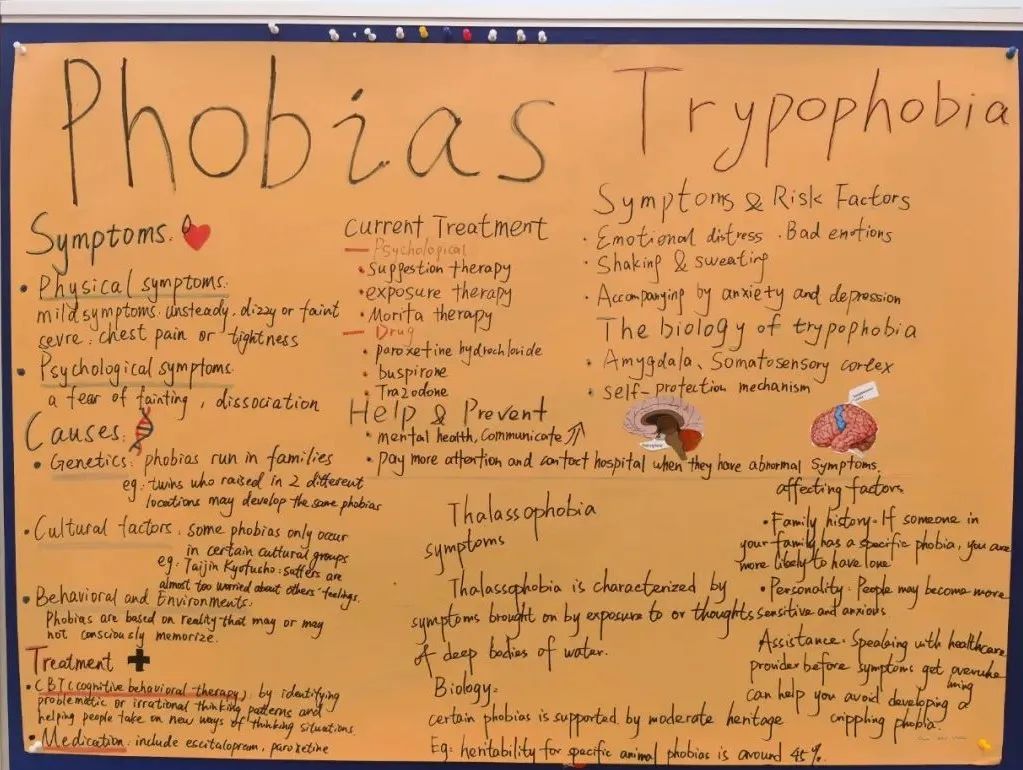 Phobias
Symptoms:
Physical symptoms:
mild symptoms: unsteady, dizzy or faint
sevre: chest pain or tightness
Psychological symptoms:
a fear of fainting, dissociation
Causes:
Genetics: phobias run in families
eg: twins who raised in 2 different
locations may develop the same phobias
Cultural factors: some phobias only occur
in certain cultural groups
eg: Taijin Kyofusho: suffers are
almost too worried about others' feelings.
Behavioral and Environments:
Phobias are based on reality that may or may
not consciously memorize.
Treatment
CBT (cognitive behavioral therapy): by identifying
problematic or irrational thinking patterns and
helping people take on new ways of thinking situations.
Medication: include escitalopram, paroxetine
Current Treatment
Psychological
suggestion therapy
exposure therapy
Morita therapy
Drug
paroxetine hydrochloride
buspirone
Trazodone
Help & Prevent
mental health, Communicate
pay more attention and contact hospital when they have abnormal symptoms.
Trypophobia
Symptoms & Risk Factors
Emotional distress · Bad emotions
Shaking & sweating
Accompanying by anxiety and depression
The biology of trypophobia
Amygdala, Somatosensory cortex
self-protection mechanism
Thalassophobia
symptoms
Thalassophobia is characterized by
symptoms brought on by exposure to or thoughts
of deep bodies of water.
Biology:
certain phobias is supported by moderate heritage
Eg: heritability for specific animal phobias is around 45%.
affecting factors
Family history: If someone in
your family has a specific phobia, you are
more likely to have one
Personality: People may become more
sensitive and anxious
Assistance: Speaking with healthcare
provider before symptoms get overwhe
lming
can help you avoid developing a
crippling phobia.